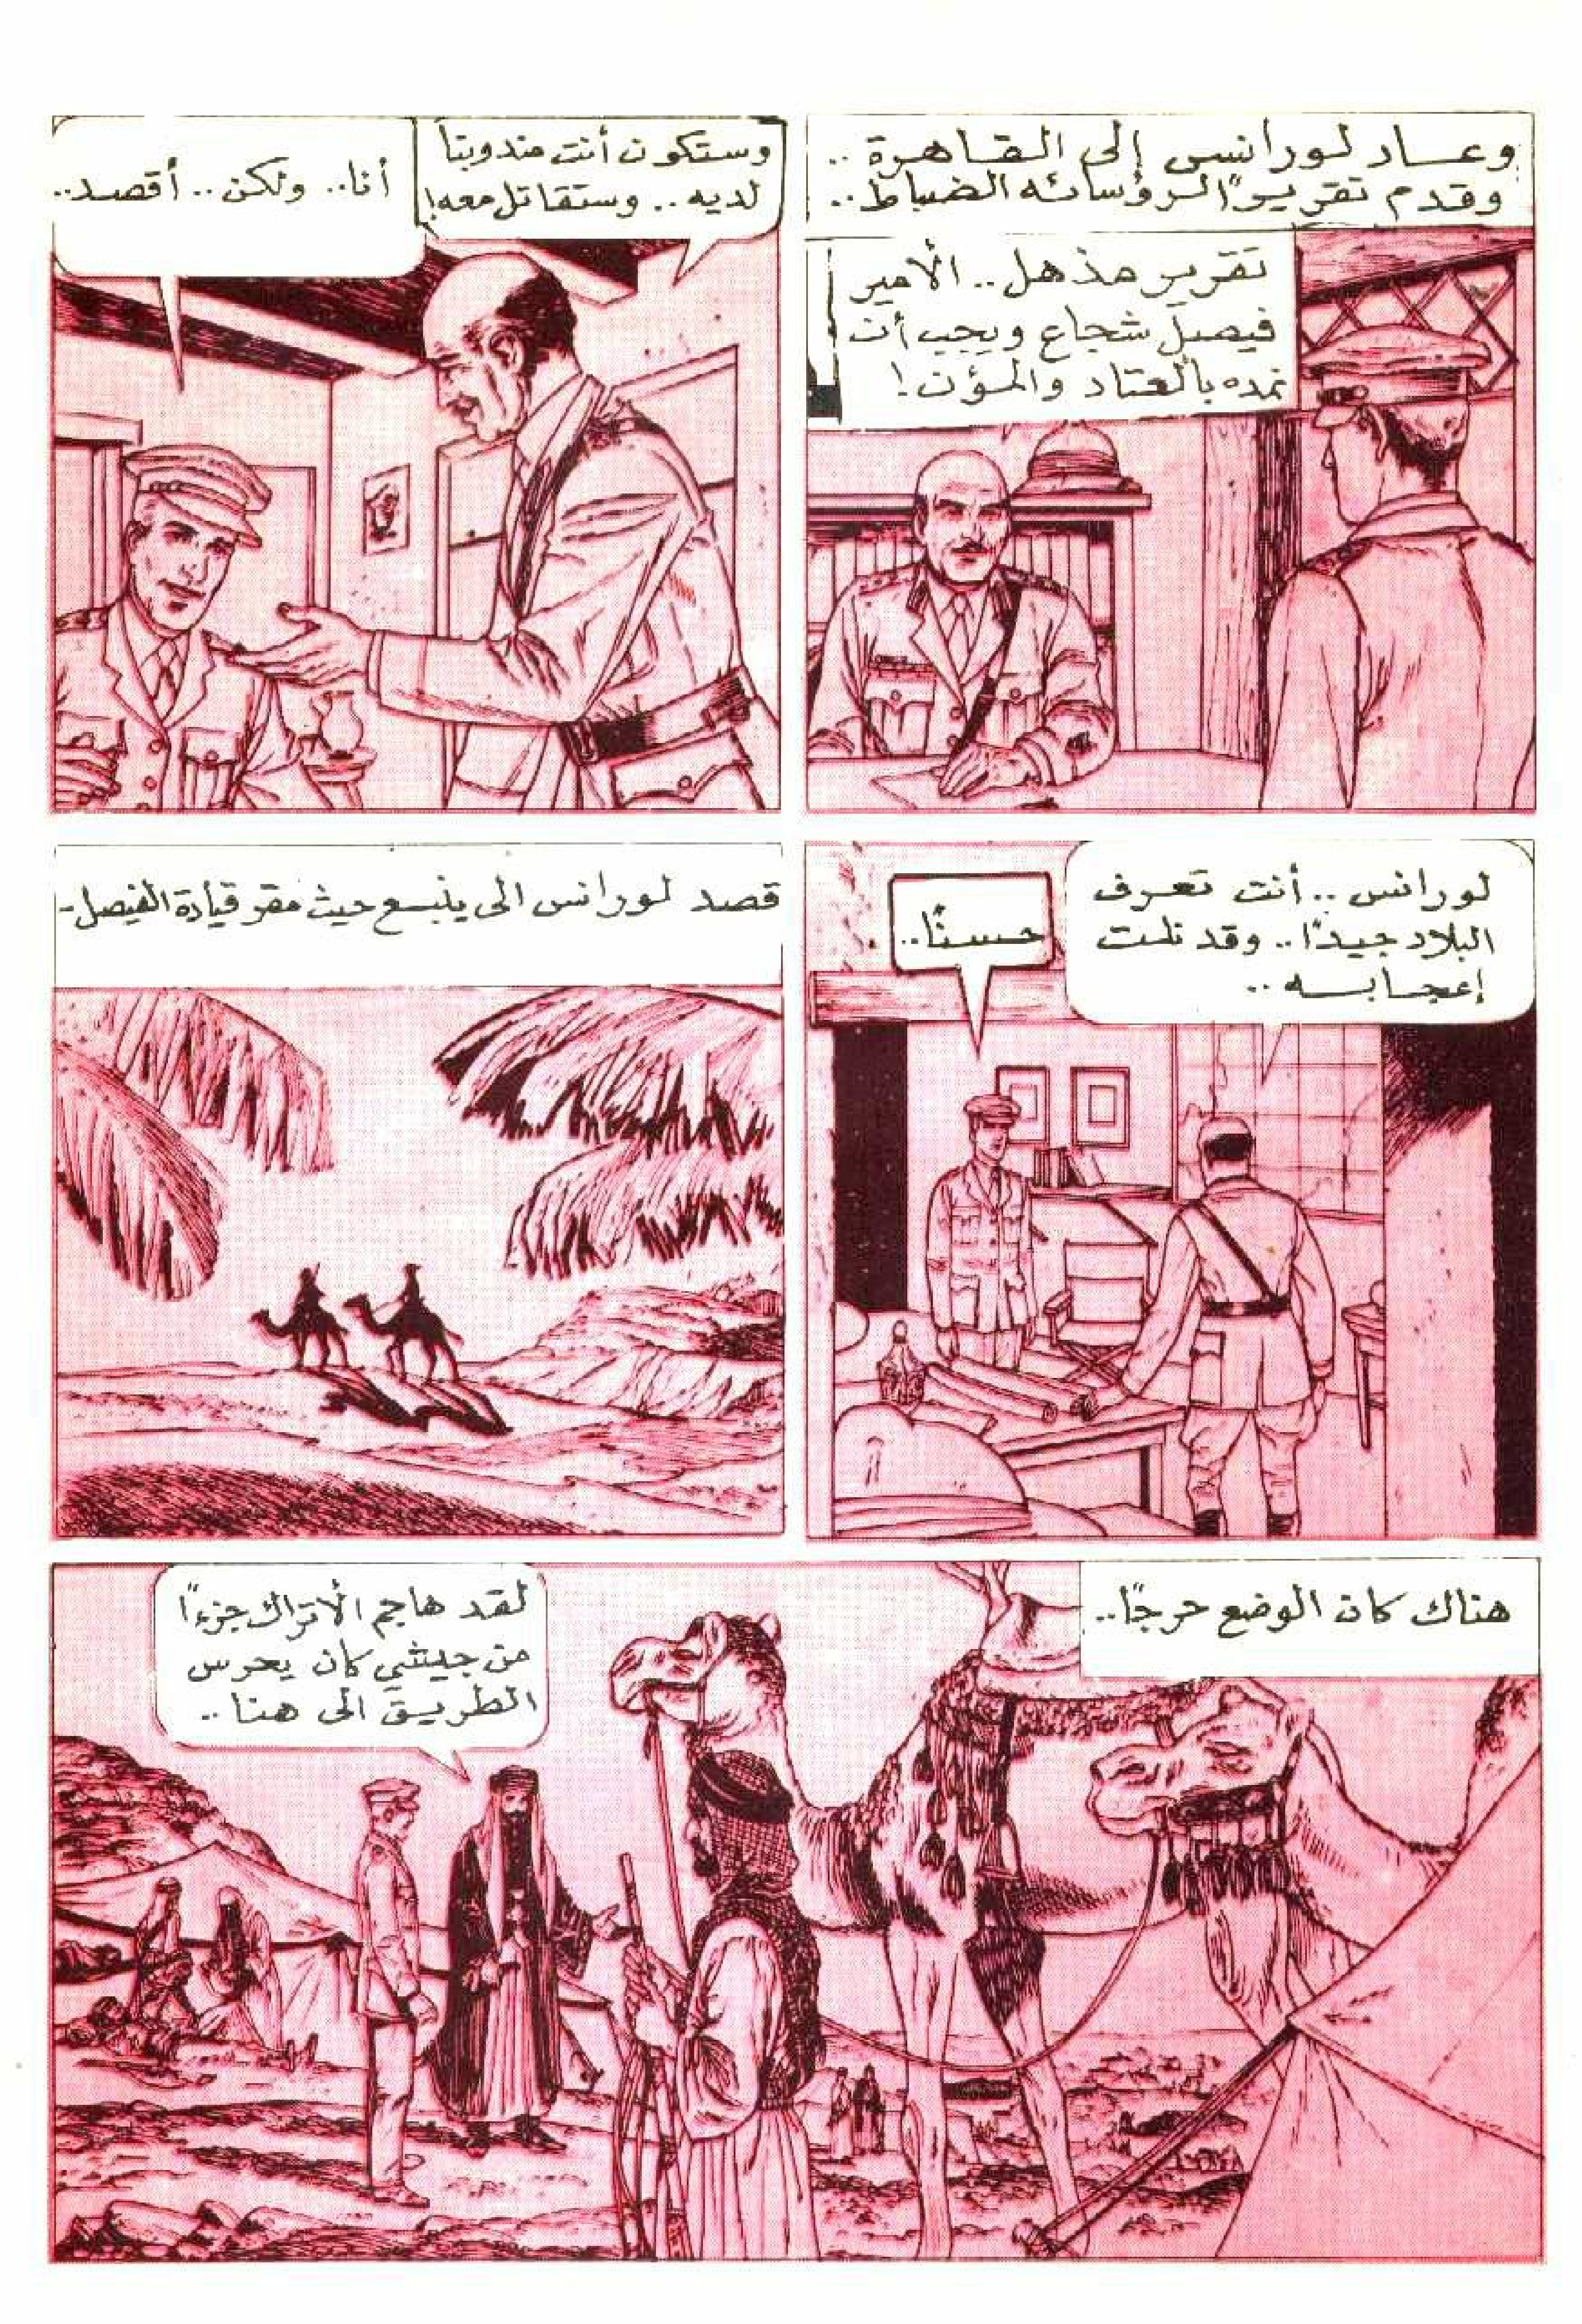 وعاد لورانس إلى القاهرة ..
وقدم تقريرًا لرؤسائه الضباط ..
تقرير مذهل .. الأمير
فيصل شجاع ويجب أن
نمده بالعتاد والمؤن !
وستكون أنت مندوبنا
لديه .. وستقاتل معه !
أنا .. ولكن .. أقصد ..
لورانس .. أنت تعرف
البلاد جيدًا .. وقد نلت
إعجابه ..
حسنًا ..
قصد لورانس الى ينبع حيث مقر قيادة الفيصل -
هناك كان الوضع حرجًا ..
لقد هاجم الأتراك جزءًا
من جيشي كان يحرس
الطريق الى هنا ..